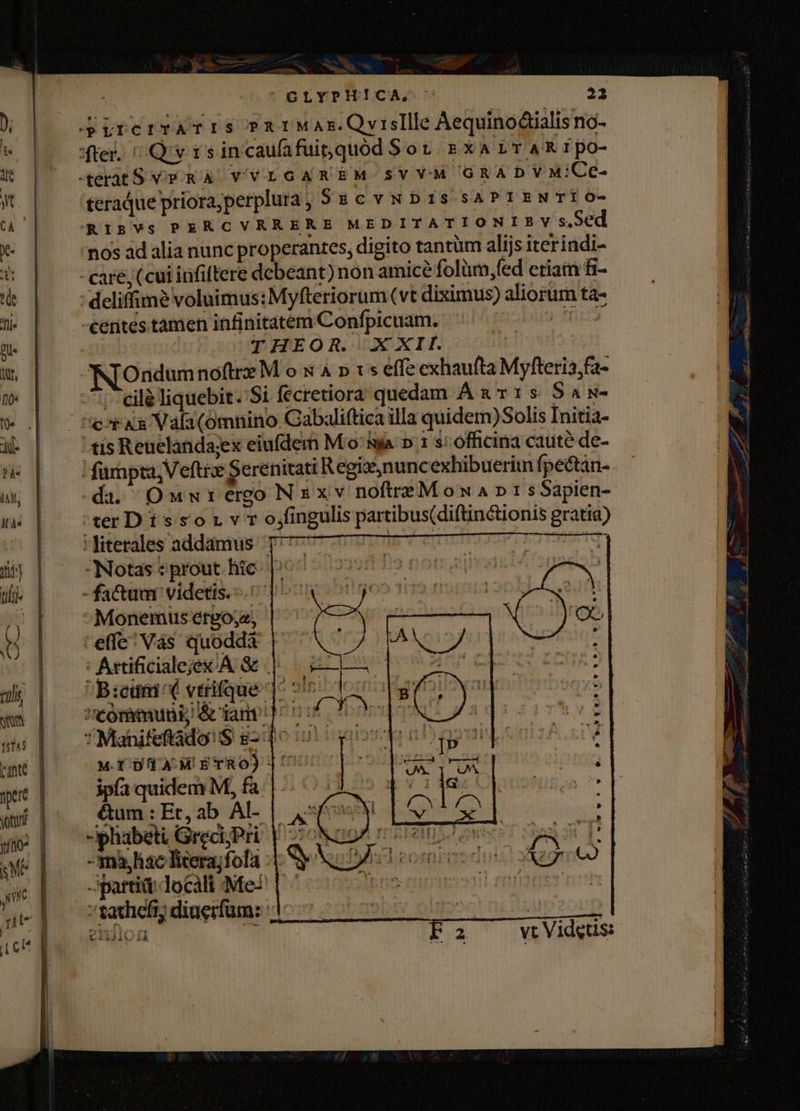 GLYPHICA. 23
PLICITATIS PRIMAE. QVIS Ille Aequinoctialis no-
ſter. QVIS in cauſa fuit, quòd SOL EXALTAR I po-
terat SVPRA VVLGAREM SVVM GRADVM: Ce-
teraque priora, perplura, SECVNDIS SAPIENTIO-
RIBVS PERCVRRERE MEDITATIONIBVS. Sed
nos ad alia nunc properantes, digito tantùm alijs iter indi-
care, (cui inſiſtere debeant) non amicè ſolùm, ſed etiam fi-
deliſſimè voluimus: Myſteriorum (vt diximus) aliorum ta-
centes tamen infinitatem Conſpicuam.
THEOR. XXII.
NOndum noſtræ MONADIS eſſe exhauſta Myſteria, fa-
cilè liquebit. Si ſecretiora quedam ARTIS SAN-
CTAE Vaſa (omnino Cabaliſtica illa quidem) Solis Initia-
tis Reuelanda; ex eiuſdem MONADIS officina cautè de-
ſumpta, Veſtræ Serenitati Regiæ, nunc exhibuerim ſpectan-
da. OMNI ergo NEXV noſtræ MONADIS Sapien-
ter DISSOLVTO, ſingulis partibus (diſtinctionis gratia)
literales addamus
Notas: prout hic
factum videtis.
Monemus ergo, α,
eſſe Vas quoddã
Artificiale, ex A &
B: cum vtriſque
communi, & iam
Manifeſtãdo SE-
MIDIAMETRO)
ipſa quidem M, fa-
ctum: Et, ab Al-
phabeti Greci, Pri-
ma, hac litera, ſola
partiũ locali Me-
tatheſi, diuerſum:
A
B
D
G
M
M
α
ω
F 2 vt Videtis: